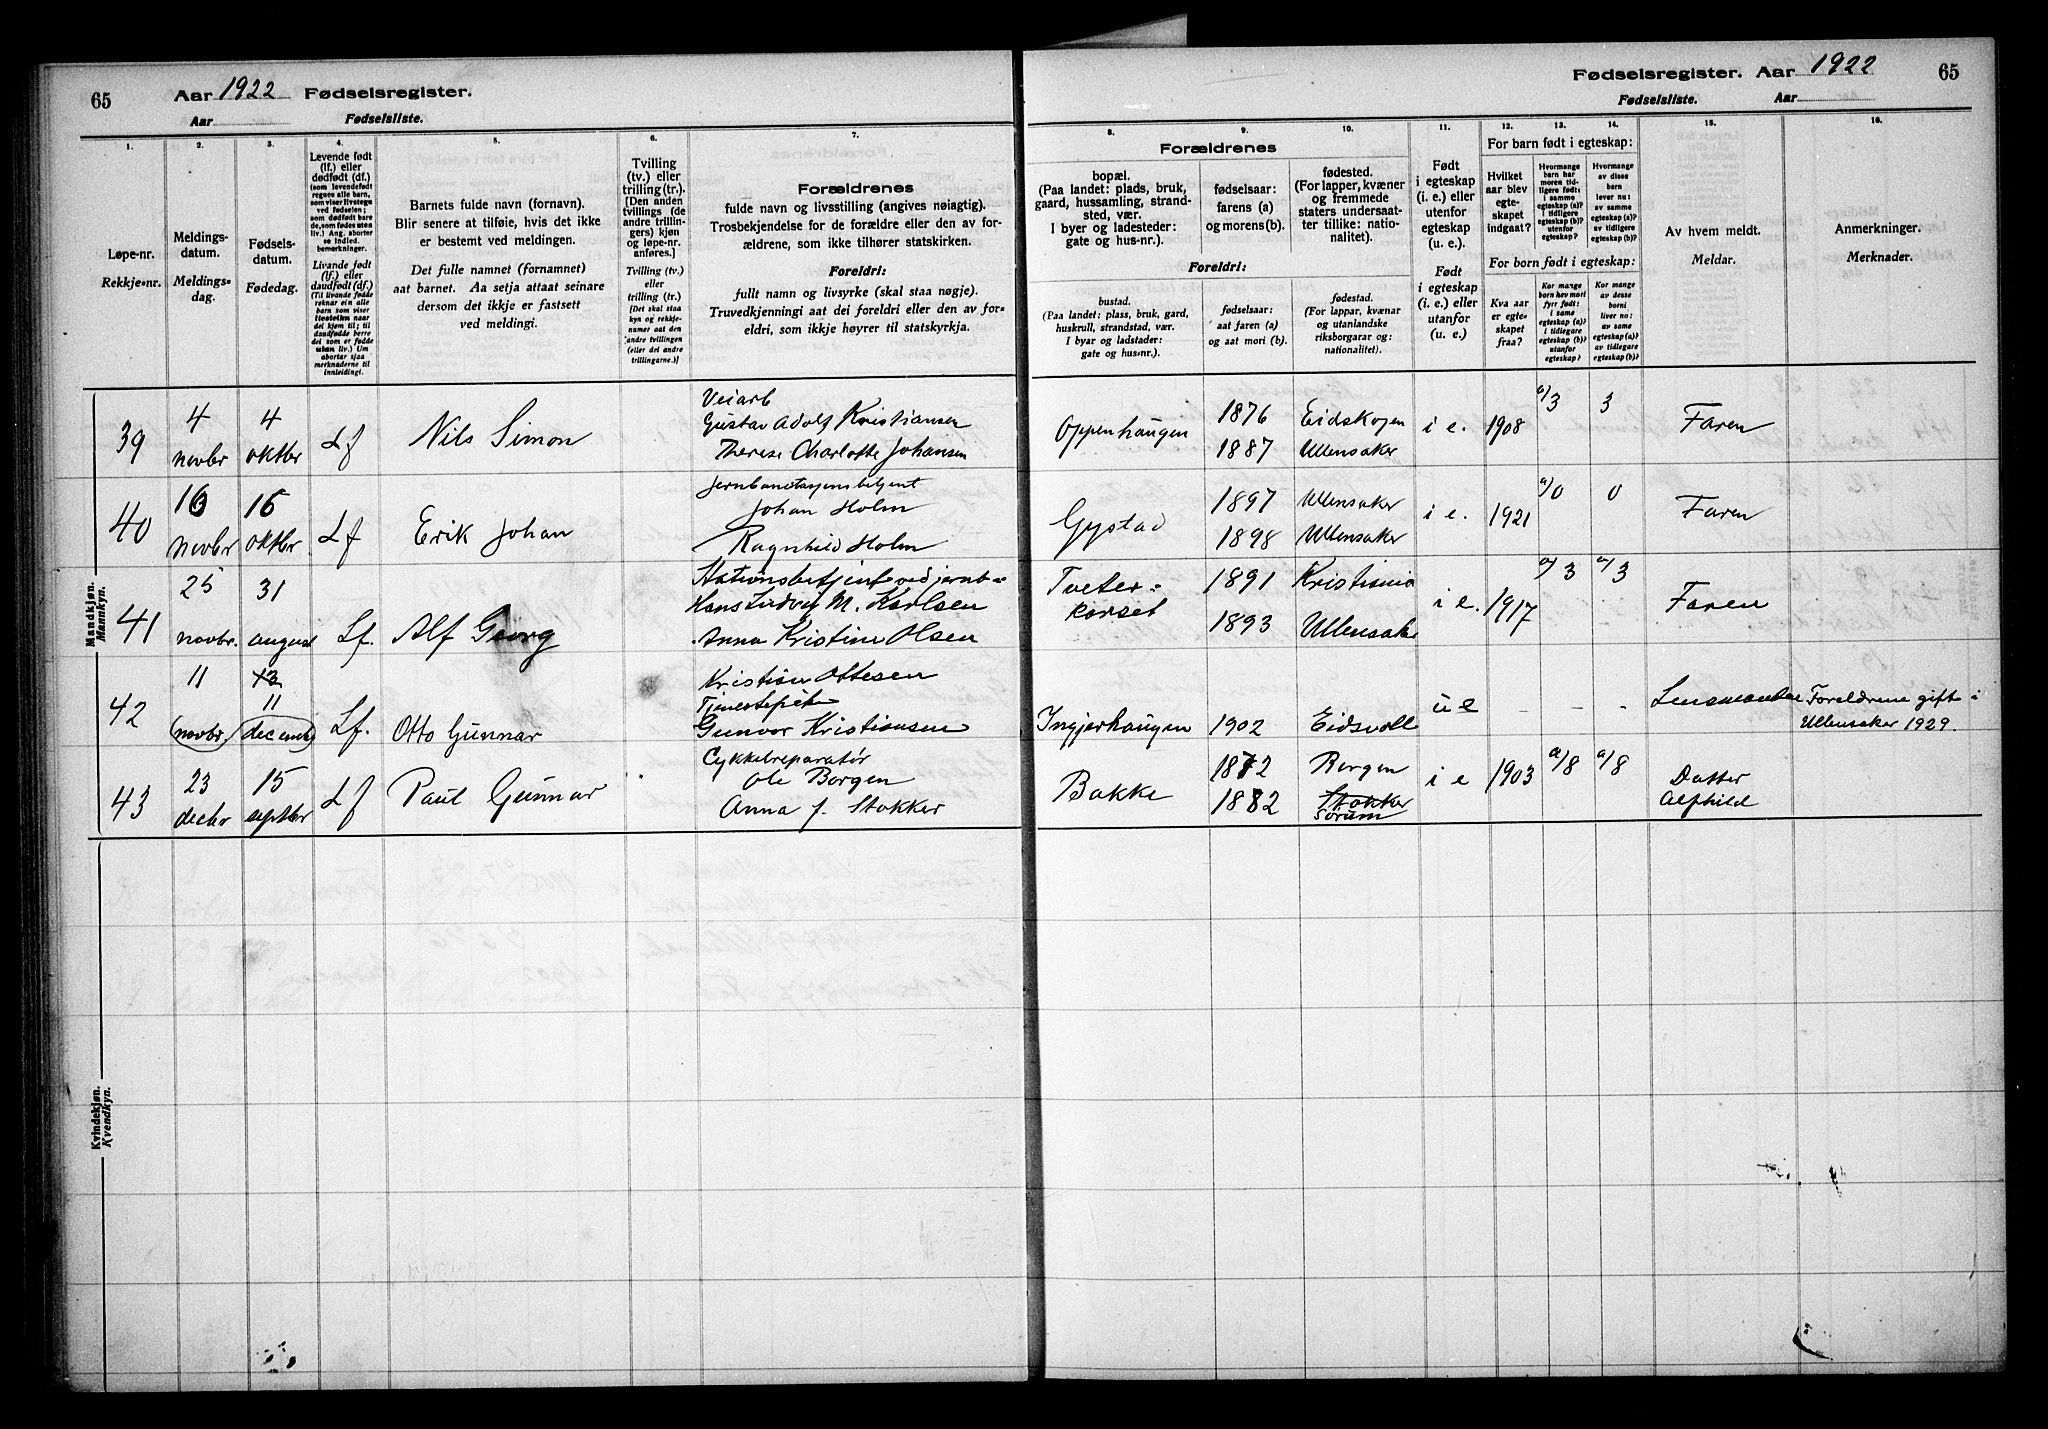 65 Aar 1922 Fødselsregister.
Aar Fødselsliste.
Fødselsregister. Aar 1922 65
Fødselsliste. Aar
1. 2. 3. 4. 5. 6. 7.
8. 9. 10. 11. 12. 13. 14. 15. 16.
Løpe-nr.
Rekkje-nr.
Meldings-
datum.
Meldings-
dag.
Fødsels-
datum.
Fødedag.
Levende født
(lf.) eller
dødfødt (df.)
(som levendefødt
regnes alle barn,
som viser livstegn
ved fødselen;
som dødfødt bare
de, som fødes uten
liv.) Ang. aborter
se indled.
bemerkninger.
Livande født
(lf.) eller
daudfødt (df.)
(Til livande fødde
reknar ein alle
barn som viser
livsteikn naar
dei kjem til; til
daudfødde berre
dei som er fødde
utan liv.) Um
abortar sjaa
merknaderne til
innleidingi.
Barnets fulde navn (fornavn).
Blir senere at tilføie, hvis det ikke
er bestemt ved meldingen.
Det fulle namnet (fornamnet)
aat barnet. Aa setja attaat seinare
dersom det ikkje er fastsett
ved meldingi.
Tvilling
(tv.) eller
trilling (tr.).
[Den anden
tvillings (de
andre trillin-
gers) kjøn
og løpe-nr.
anføres.]
Tvilling (tv.)
eller
trilling (tr.)
[Det skal staa
kyn og rekkje-
numer aat den
andre tvillingen
(eller dei andre
trillingarne.)]
Forældrenes
fulde navn og livsstilling (angives nøiagtig).
Trosbekjendelse for de forældre eller den av for-
ældrene, som ikke tilhører statskirken.
Foreldri:
fullt namn og livsyrke (skal staa nøgje).
Truvedkjenningi aat dei foreldri eller den av for-
eldri, som ikkje høyrer til statskyrkja.
Forældrenes
bopæl.
(Paa landet: plads, bruk,
gaard, hussamling, strand-
sted, vær.
I byer og ladesteder:
gate og hus-nr.).
fødselsaar:
farens (a)
og morens (b).
fødested.
(For lapper, kvæner
og fremmede
staters undersaat-
ter tillike: natio-
nalitet).
Foreldri:
bustad.
(Paa landet: plass, bruk, gard,
huskrull, strandstad, vær.
I byar og ladstader:
gate og hus-nr.).
fødselsaar:
aat faren (a)
og aat mori (b).
fødestad.
(For lappar, kvænar
og utanlandske
riksborgarar og:
nationalitet).
Født
i egteskap
(i. e.) eller
utenfor
egteskap
(u. e.).
Født
i egteskap
(i. e.) eller
utanfor
(u. e.).
For barn født i egteskap:
Hvilket
aar blev
egte-
skapet
indgaat?
Hvormange
barn har
moren tid-
ligere født:
i samme
egteskap (a)?
i tidligere
egteskap (b)?
utenfor
egteskap?
Hvormange
av disse
barn
lever nu:
av samme
egteskap (a)?
av tidligere
egteskap (b)?
For born født i egteskap:
Kva aar
er egte-
skapet
fraa?
Kor mange
born hev mori
fyrr født:
i same
egteskap (a)?
i tidlegare
egteskap (b)?
utanfor
egteskap?
Kor mange
av desse
borni
liver no:
av same
egteskap (a)?
av tidlegare
egteskap (b)?
Av hvem meldt.
Meldar.
Anmerkninger.
Merknader.
Mandkjøn.
Mannkyn.
39 4 novbr 4 oktbr Lf Nils Simon
Veiarb
Gustav Adolf Kristiansen
Therese Charlotte Johansen
Oppenhaugen 1876 Eidskogen i e. 1908 a/3 3 Faren
1887 Ullensaker
40 novbr 16 oktbr Lf Erik Johan
Johan Holm
Ragnhild Holm
Gystad 1897 Ullensaker i e. 1921 a/0 0 Faren
1898 Ullensaker
41 25 novbr. 31 august Lf. Alf Georg
Stationsbetjent ved jernb-
Hans Ludvig M. Karlsen
Anna Kristine Olsen
Tveter-
korset 1891 Kristiania i e. 1917 a/3 a/3 Faren
1893 Ullensaker
42 11 novbr. 11 decemb Lf. Otto Gunnar
Kristian Ottesen
Tjenestepike
Gunvor Kristiansen
Ingjerhaugen 1902 Eidsvoll u e - - - Foreldrene gift i
Ullensaker 1929.
43 23 decbr 15 septbr Lf Paul Gunnar
Cykkelreparatør
Ole Borgen
Anna J. Stokker
Bakke 1872 i e 1903 a/8 a/8 Datter
Alfhild
1882 Stokker
Sørum
Kvindekjøn.
Kvendkyn.